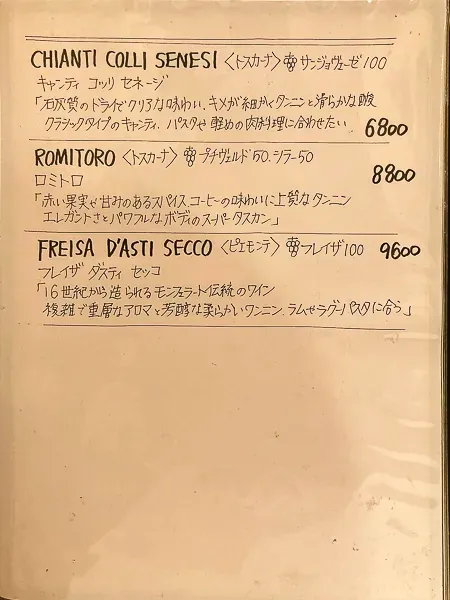 CHIANTI COLLI SENESI 〈トスカーナ〉 サンジョヴェーゼ100
キャンティ コッリ セネージ
「石灰質のドライでクリアな味わい、キメが細かくタンニンと滑らかな酸
クラシックタイプのキャンティ、パスタや軽めの肉料理に合わせたい 6800
ROMITORO 〈トスカーナ〉 プチヴェルド50、シラー50
ロミトロ 8800
「赤い果実や甘みのあるスパイス、コーヒーの味わいに上質なタンニン
エレガントさとパワフルなボディのスーパータスカン」
FREISA D'ASTI SECCO 〈ピエモンテ〉 フレイザ100 9600
フレイザ ダスティ セッコ
「16世紀から造られるモンフェラート伝統のワイン
複雑で重層なアロマと芳醇な柔らかいタンニン、ラムやラグーパスタに合う」